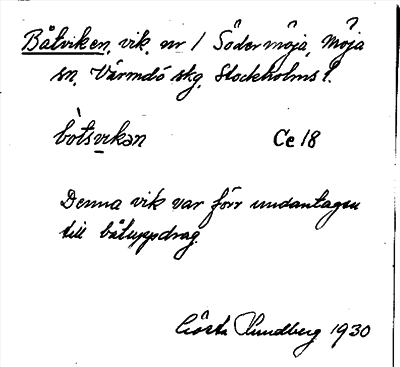 Båtviken, vik, nr 1 Södermöja, Möja
sn, Värmdö skg, Stockholms l.
bò̀tsvikan Ce 18
Denna vik var förr undantagen
till båtuppdrag.
Gösta Lundberg 1930